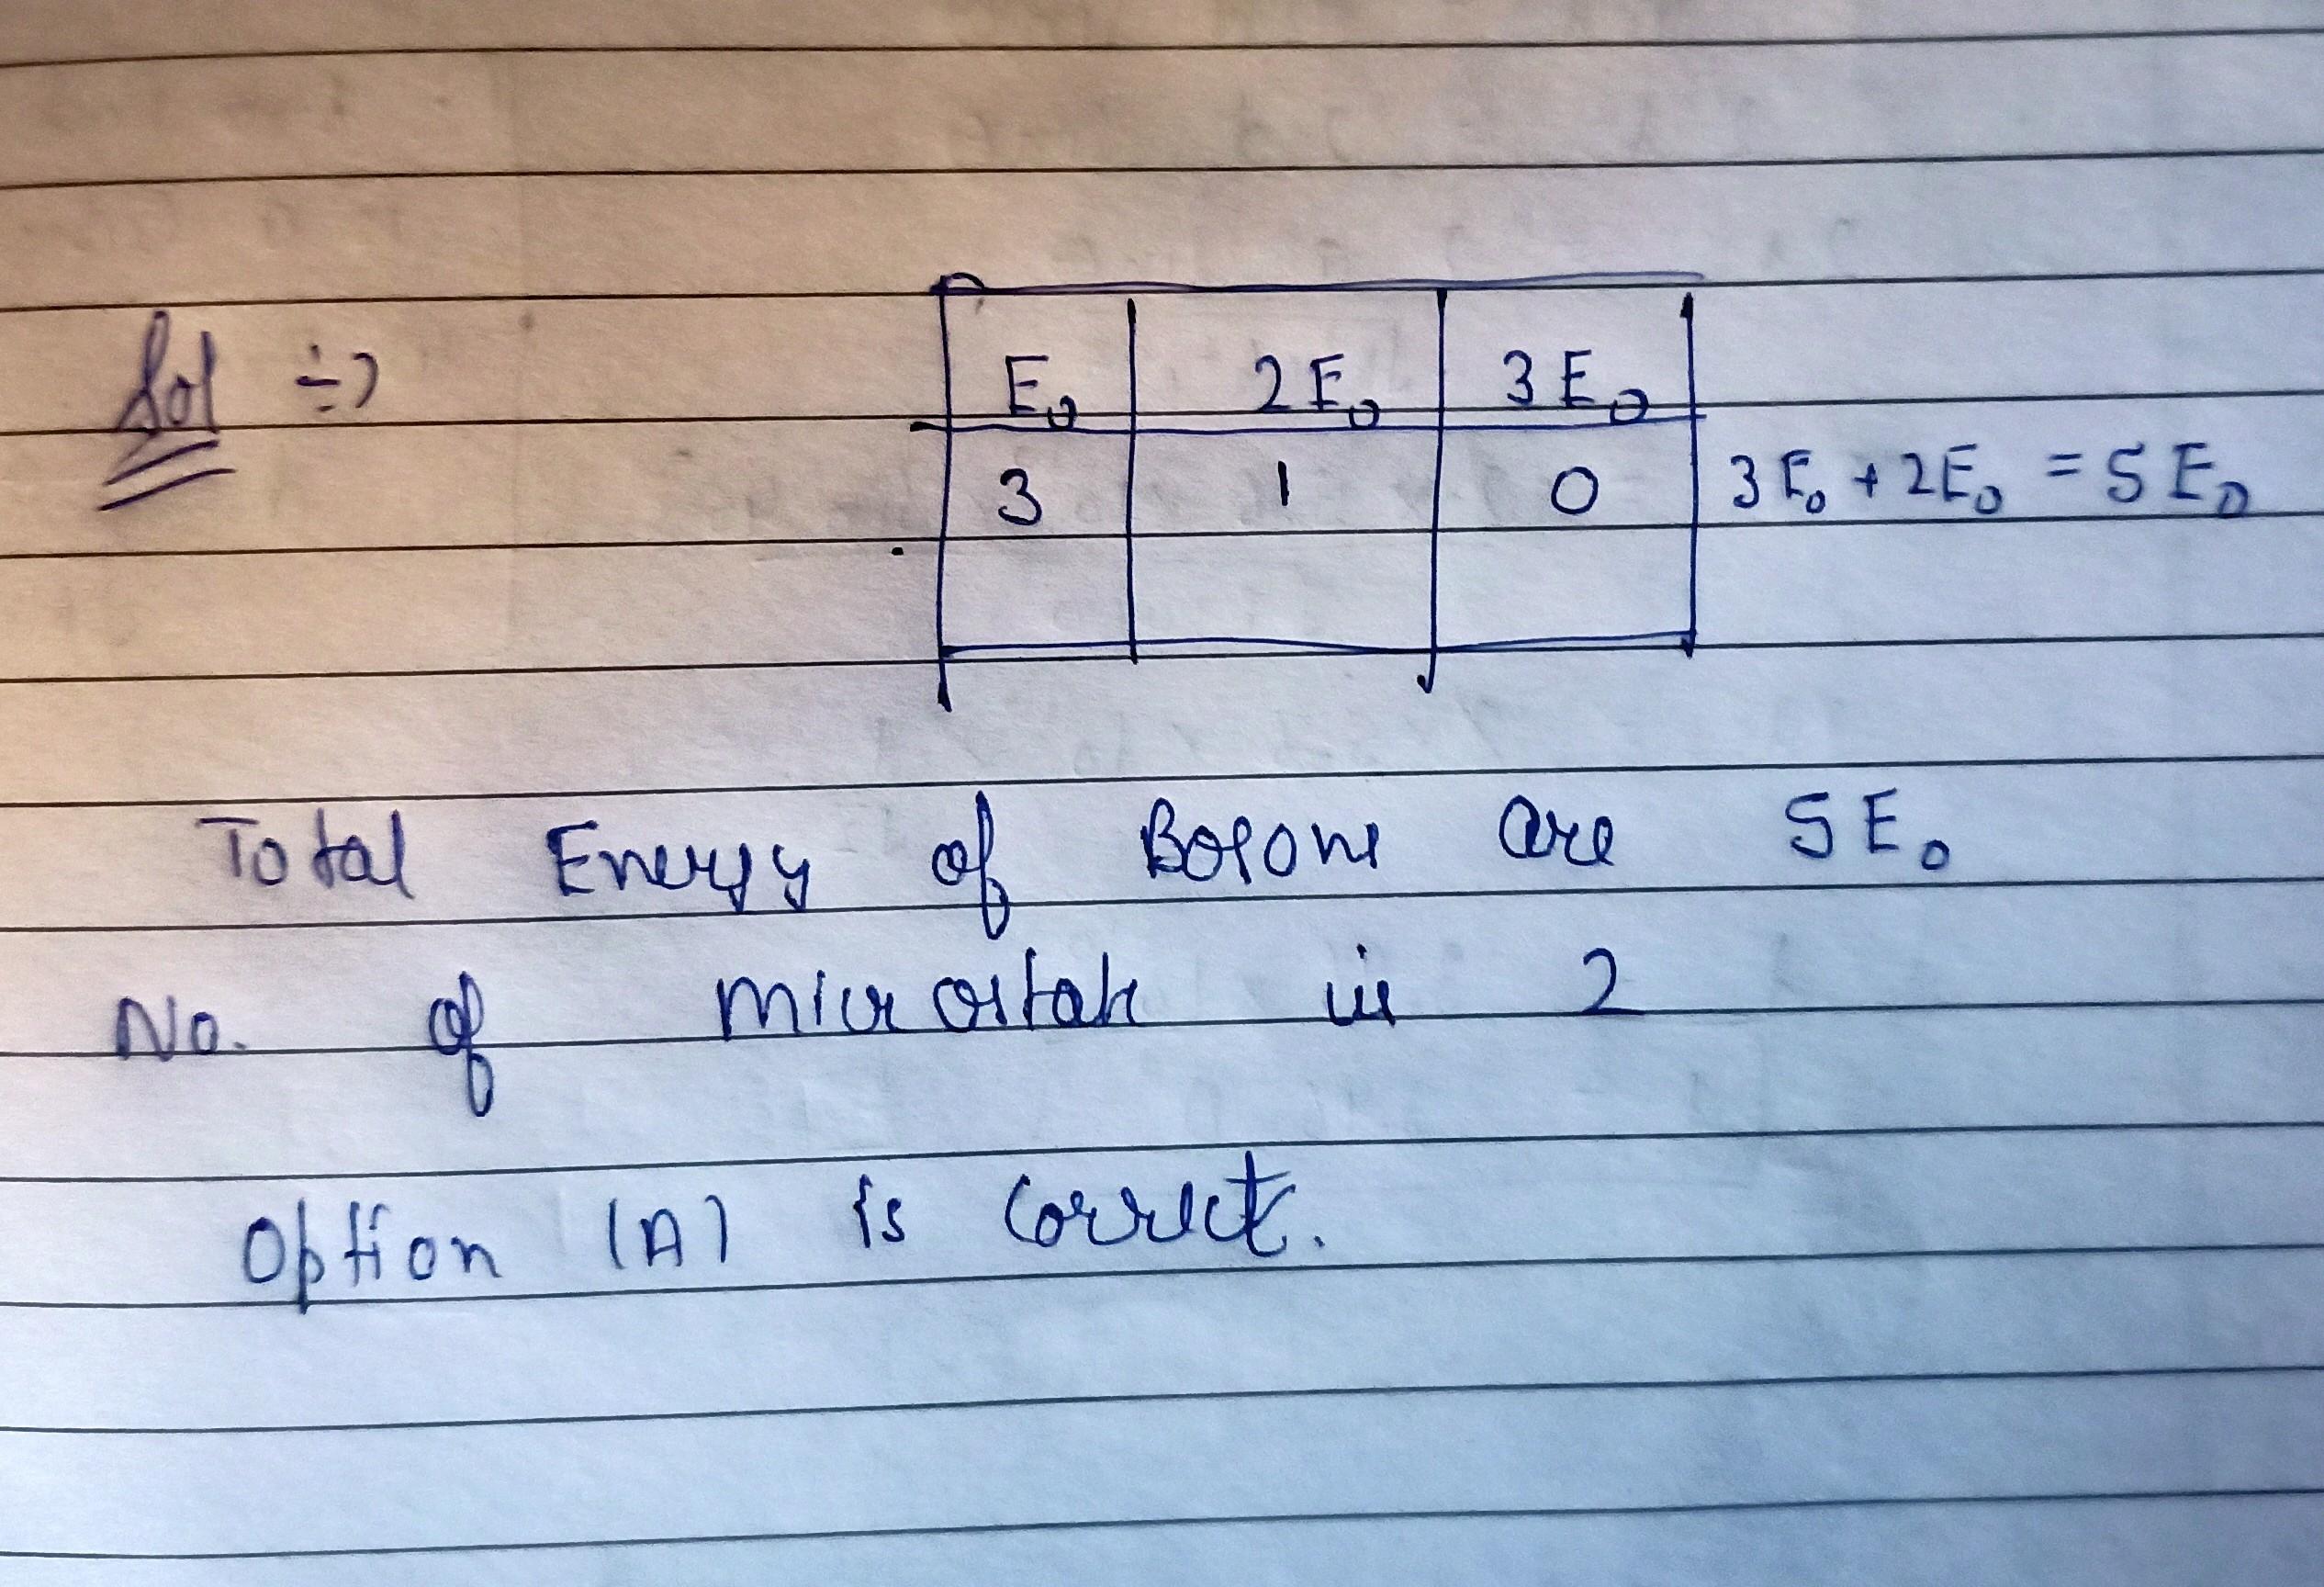 Sol ÷⇒
E₀ 2E₀ 3E₀
3 1 0 3E₀ + 2E₀ = 5E₀
Total Energy of Bosons are 5E₀
No. of microstate is 2
Option (A) is correct.